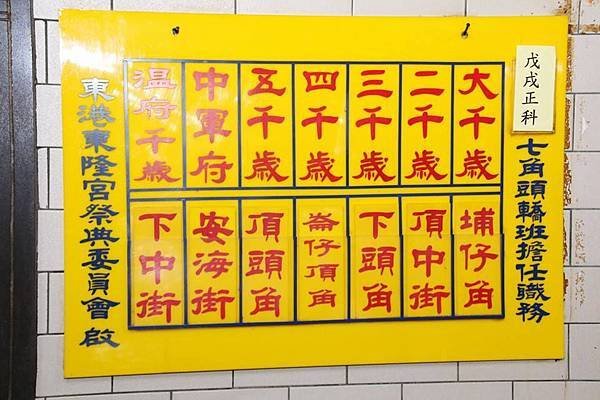 戊戌正科
七角頭轎班擔任職務
大千歲
二千歲
三千歲
四千歲
五千歲
中軍府
温府千歲
埔仔角
頂中街
下頭角
崙仔頂角
頂頭角
安海街
下中街
東港東隆宮祭典委員會 啟